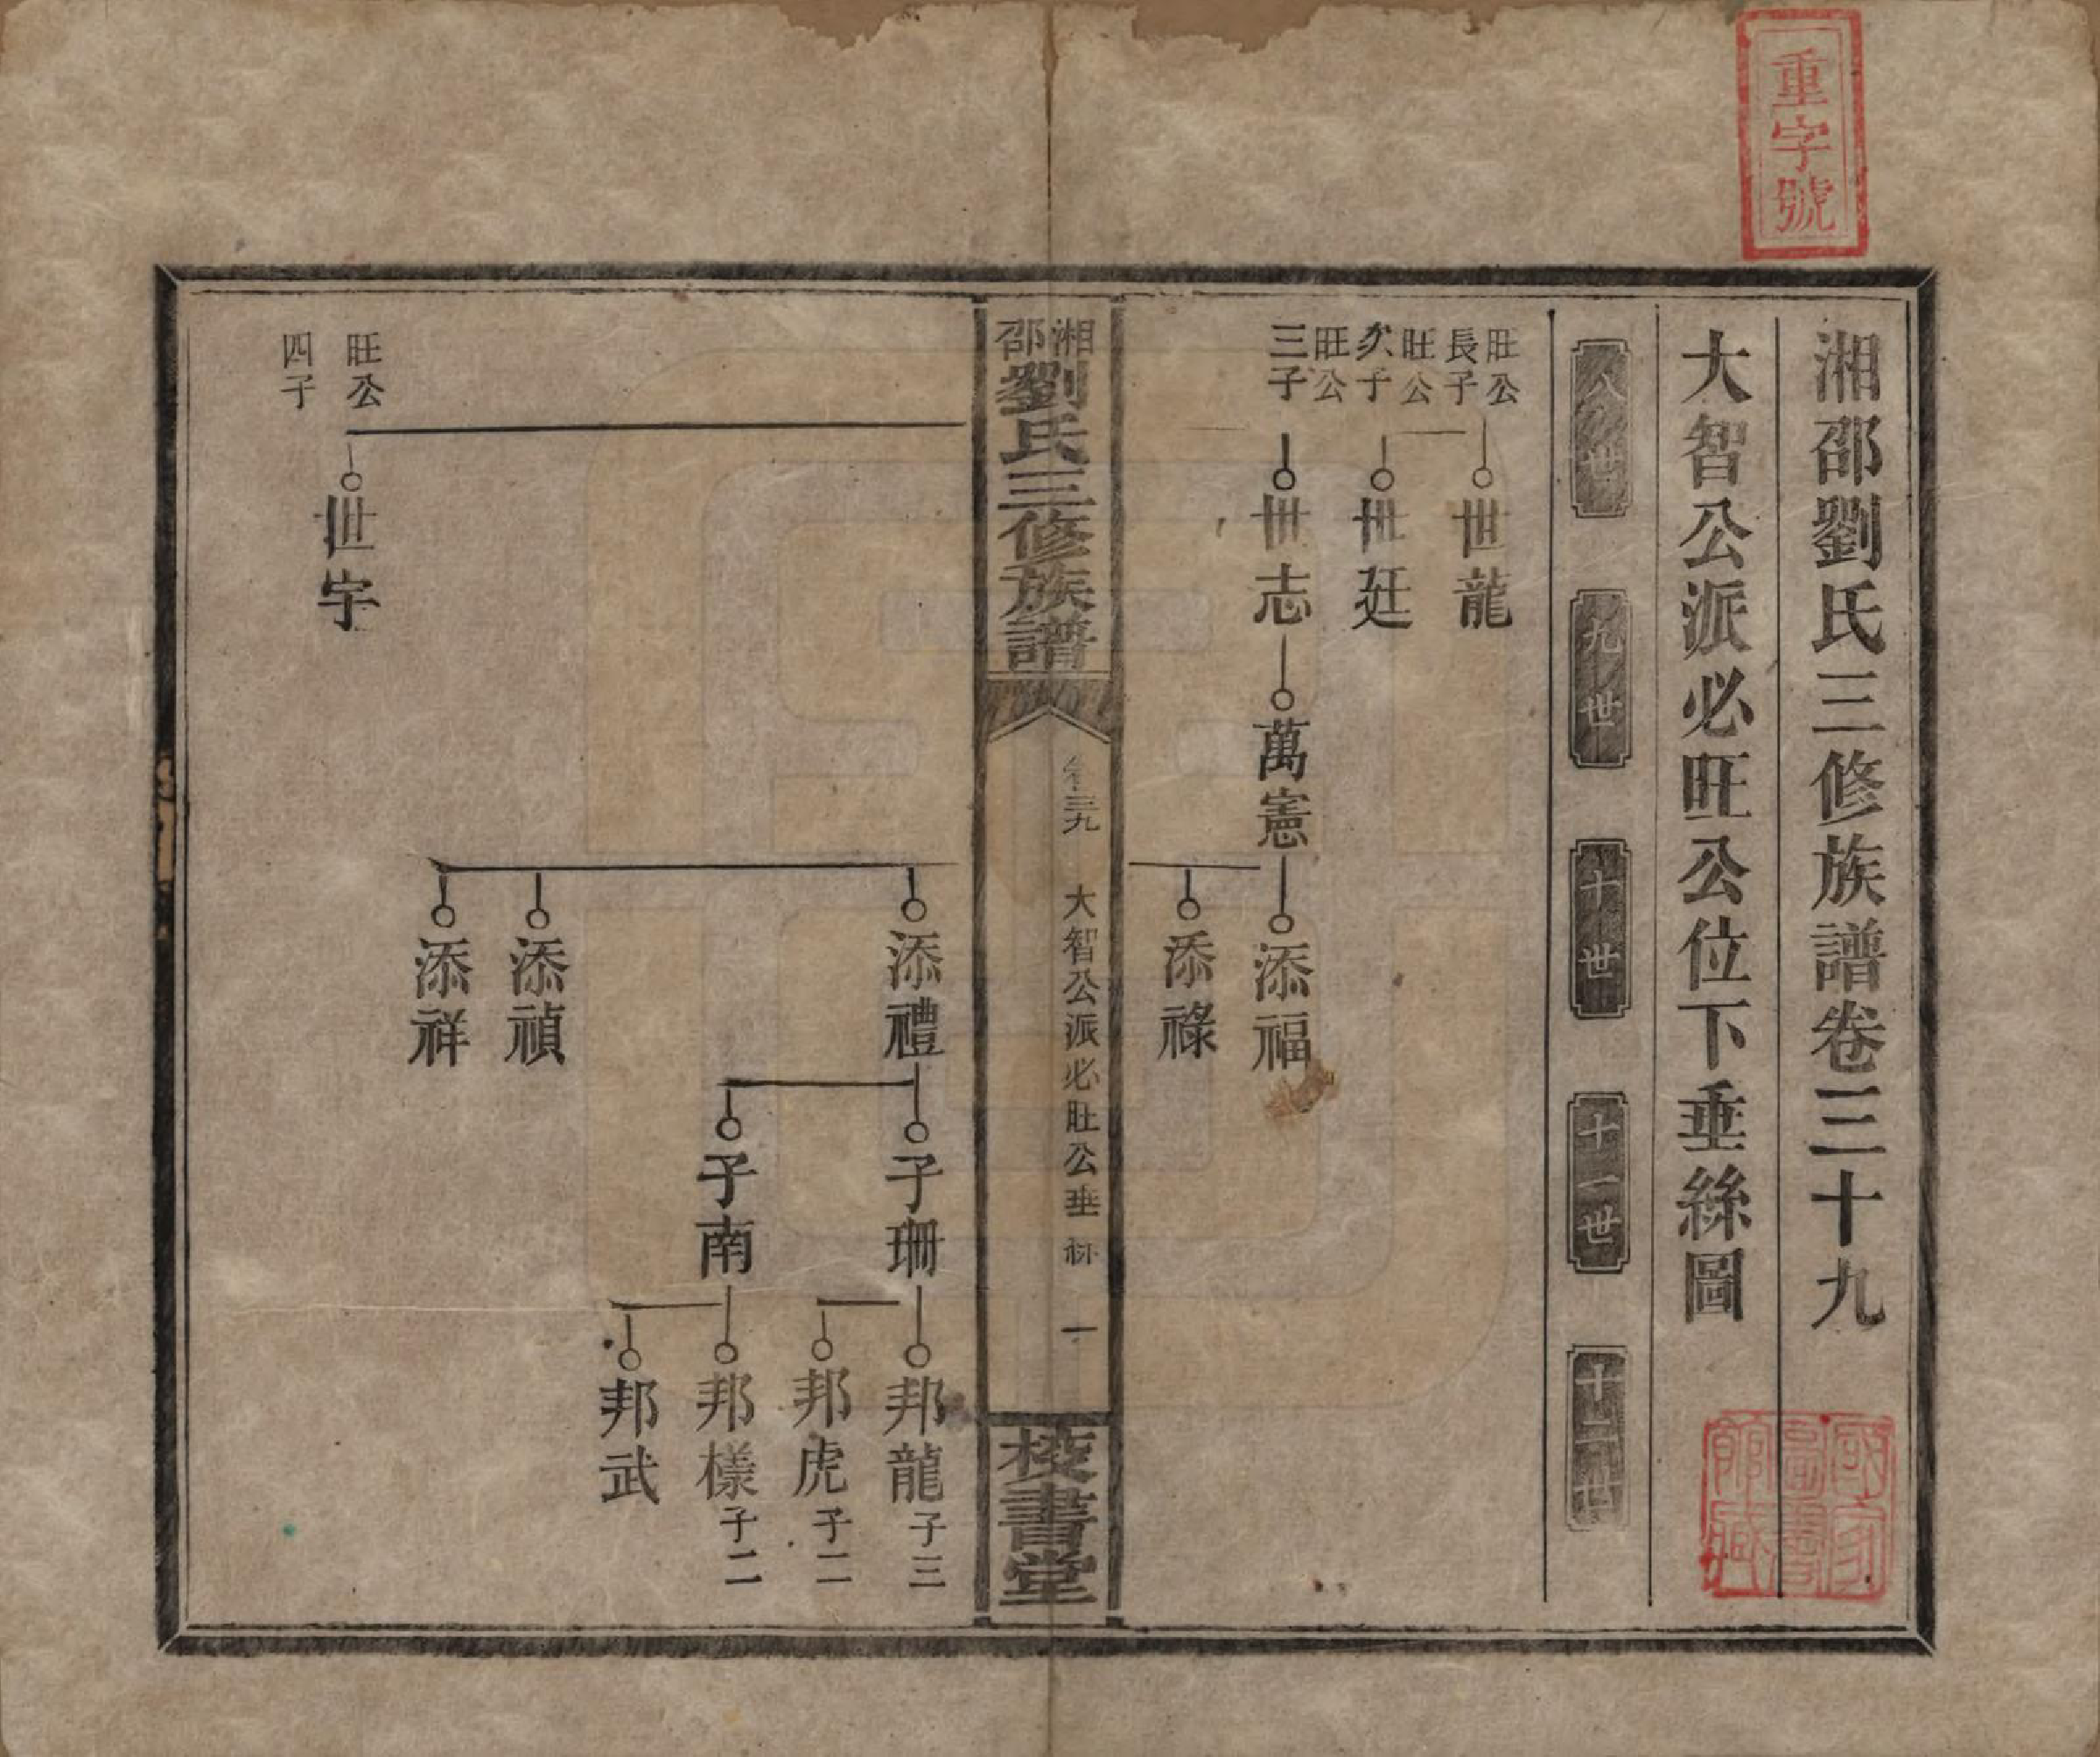 重字號
湘邵劉氏三修族譜卷三十九
大智公派必旺公位下垂絲圖
國家圖書館藏
八世
九世
十世
十一世
十二世
旺公長子
世龍
旺公次子
世廷
旺公三子
世志
萬憲
添福
添祿
湘邵劉氏三修族譜
卷三九
大智公派必旺公垂絲
一
校書堂
添禮
子珊
邦龍 子三
邦虎 子二
子南
邦樣 子二
邦武
添禎
添祥
旺公四子
世字